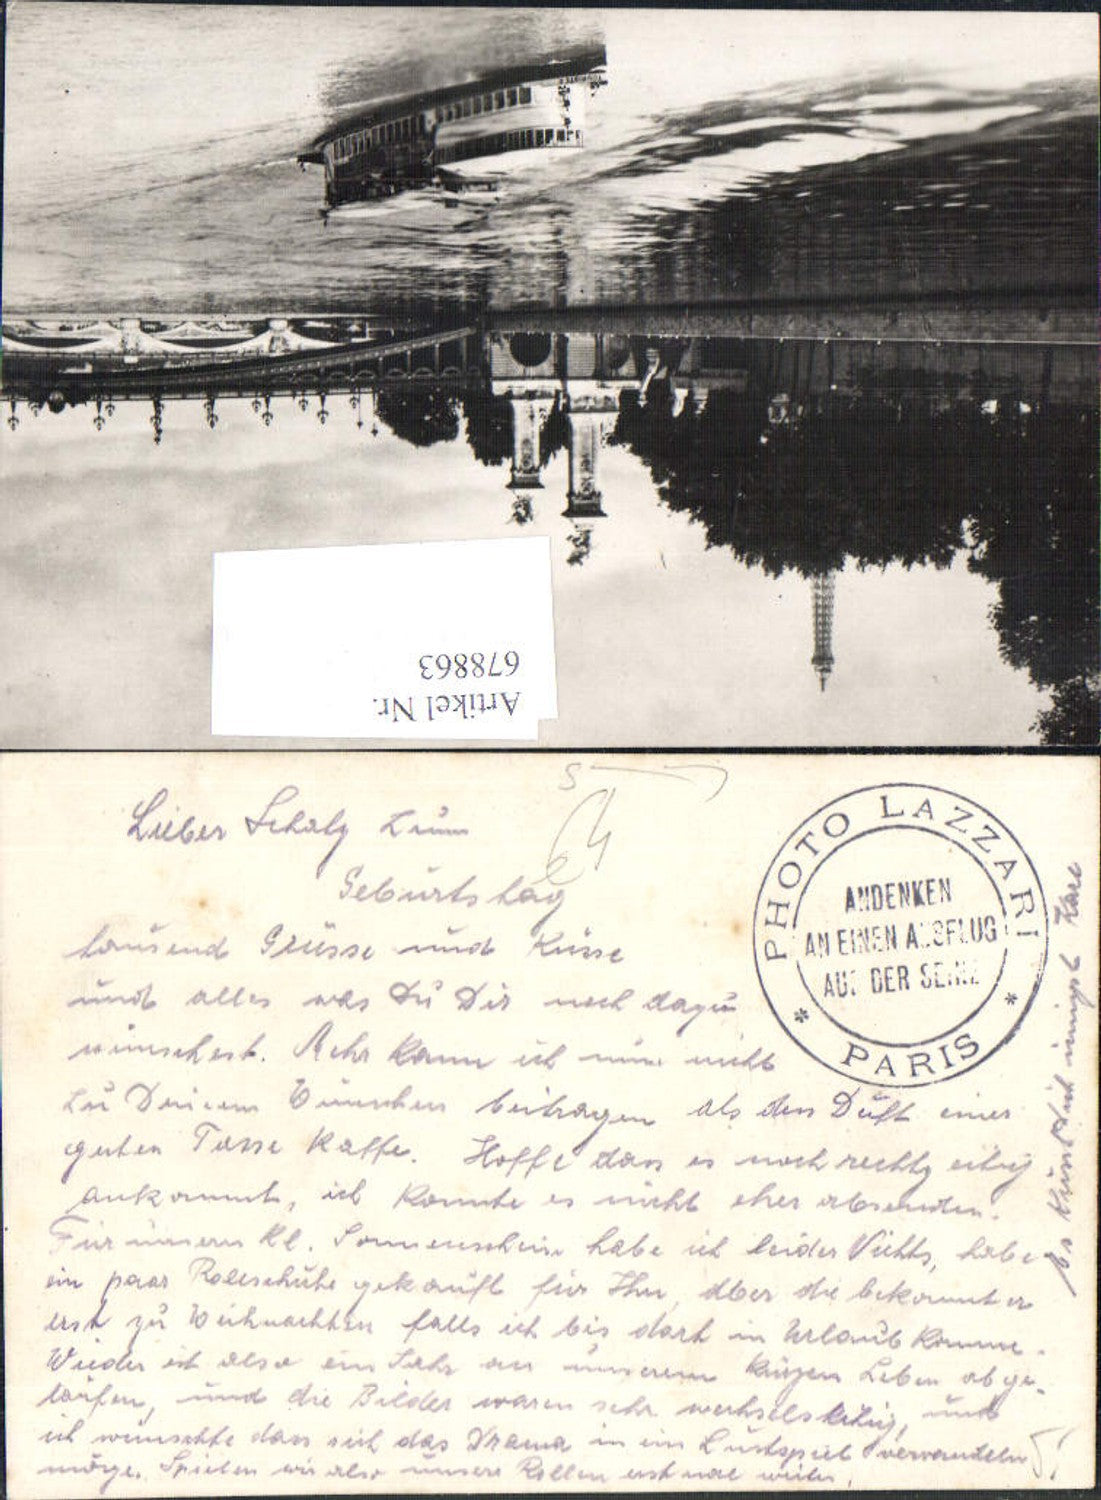 Artikel Nr.
678863
PHOTO LAZZARI
* PARIS *
ANDENKEN
AN EINEN AUSFLUG
AUF DER SEINE
Lieber Schatz Zum
Geburtstag
tausend Grüsse und Küsse
und alles was Du Dir noch dazu
wünschest. Mehr kann ich nicht
zu Deinem Wünschen beitragen als den Duft einer
guten Tasse Kaffe. Hoffe dass es noch rechtz eitig
ankommt, ich konnte es nicht eher absenden.
Für unsern kl. Sonnenschein habe ich leider Nichts, habe
ein paar Rollschuhe gekauft für Ihn, aber die bekommt er
erst zu Weihnachten falls ich bis dort in Urlaub komme.
Wieder ist also ein Jahr an unserem kurzen Leben abge-
laufen, und die Bilder waren sehr wechselseitig, und
ich wünschte dass sich das Drama in ein Lustspiel verwandeln
möge. Spielen wir also unsere Rollen erst mal weiter.
Es küsst Dich innigst Karl